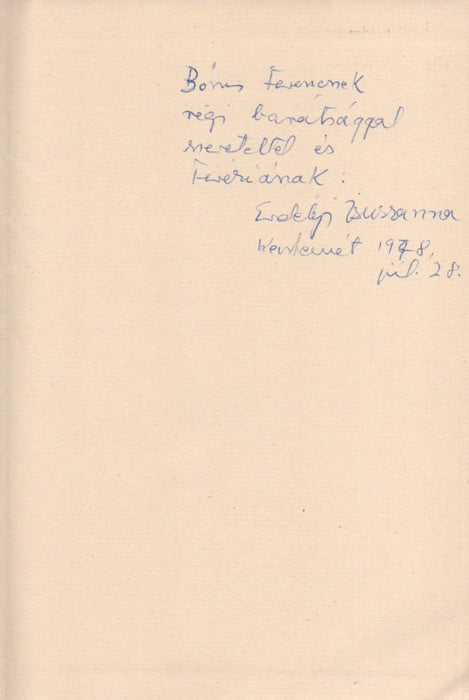 Bónis Ferencnek
régi barátsággal
szeretettel és
Teréziának:
Erdélyi Zsuzsanna
Kecskemét 1978,
júl. 28.